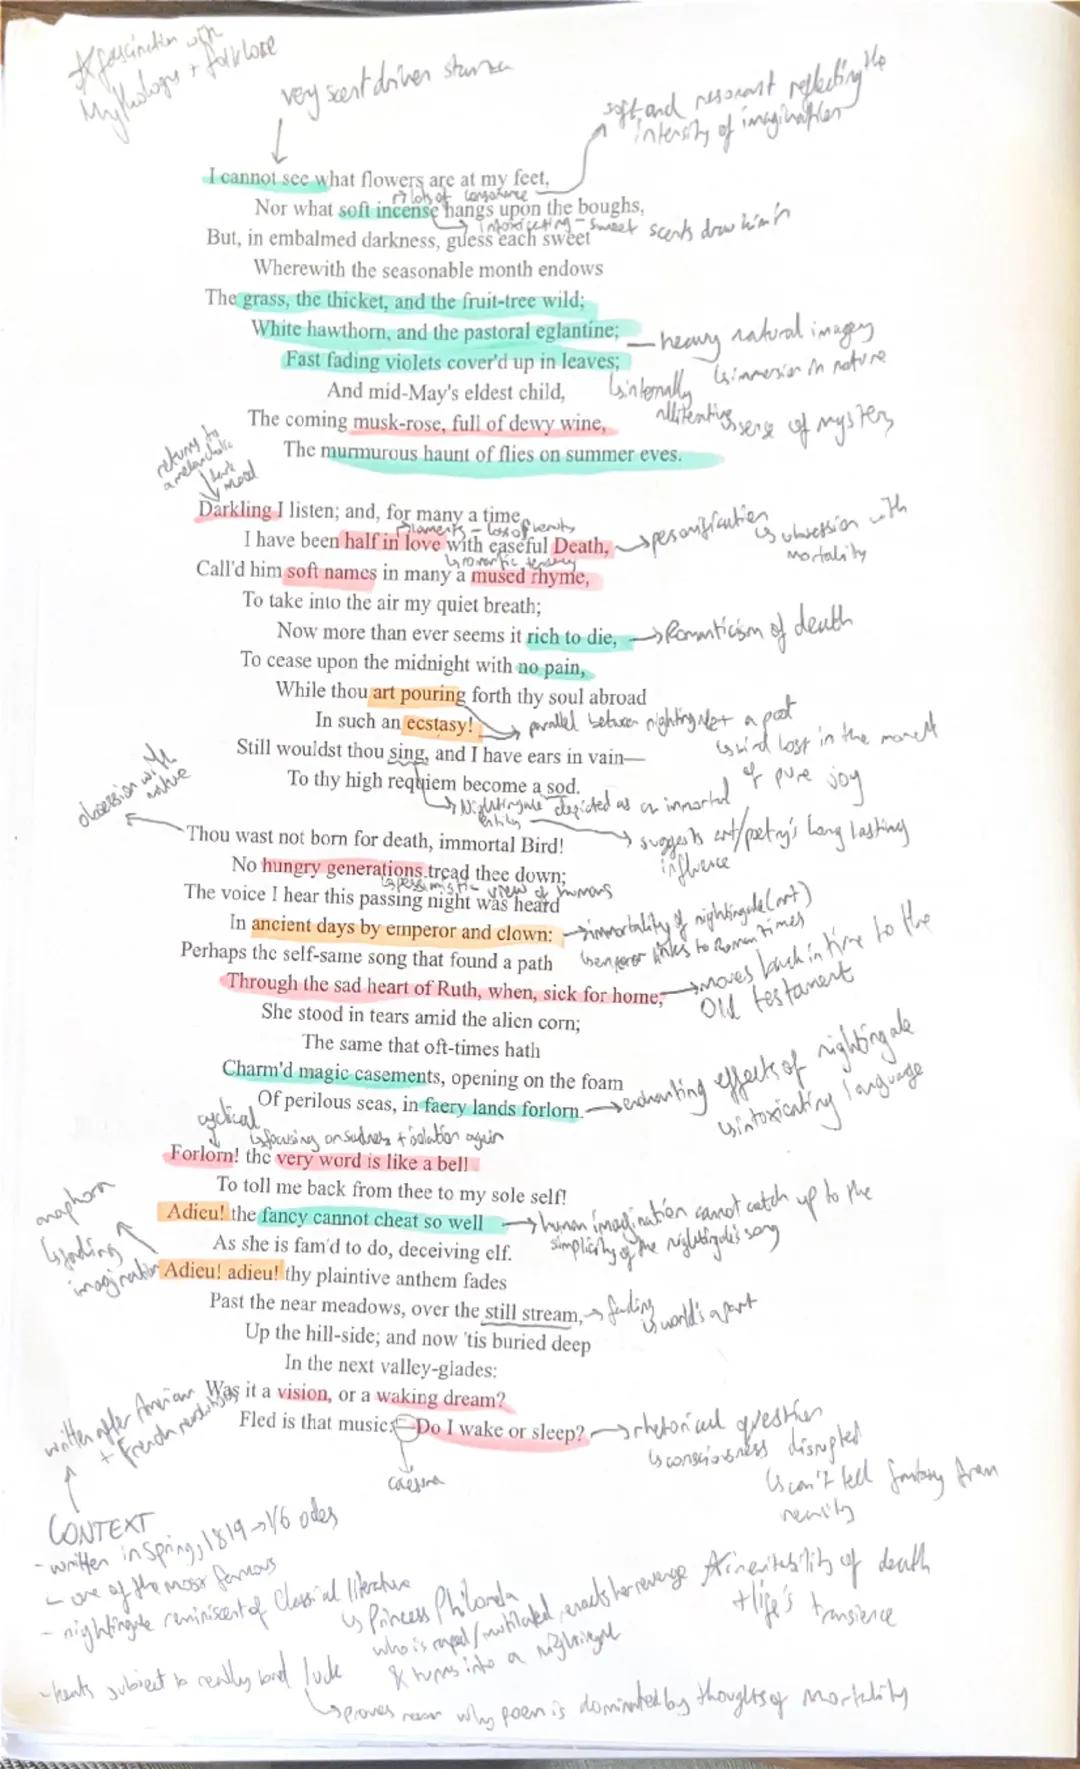 * fascination with
Mythology + folklore
very scent driven stanza
soft and resonant reflecting the
intensity of imagination
I cannot see what flowers are at my feet,
↳ lots of consonance
Nor what soft incense hangs upon the boughs,
↳ intoxicating - sweet scents draw him in
But, in embalmed darkness, guess each sweet
Wherewith the seasonable month endows
The grass, the thicket, and the fruit-tree wild;
White hawthorn, and the pastoral eglantine;
heavy natural imagery
↳ immersion in nature
Fast fading violets cover'd up in leaves;
↳ internally
alliterative
↳ sense of mystery
And mid-May's eldest child,
The coming musk-rose, full of dewy wine,
The murmurous haunt of flies on summer eves.
returns to
a melancholic
dark
mood
Darkling I listen; and, for many a time
→ laments - loss of beauty
I have been half in love with easeful Death,
→ personification
↳ obsession with
mortality
↳ romantic tendency
Call'd him soft names in many a mused rhyme,
To take into the air my quiet breath;
Now more than ever seems it rich to die,
→ Romanticism of death
To cease upon the midnight with no pain,
While thou art pouring forth thy soul abroad
In such an ecstasy!
→ parallel between nightingale + a poet
↳ bird lost in the moment
of pure joy
Still wouldst thou sing, and I have ears in vain—
To thy high requiem become a sod.
↳ Nightingale depicted as an immortal
entity
→ suggests art/poetry's long lasting
influence
obsession with
nature
Thou wast not born for death, immortal Bird!
No hungry generations tread thee down;
↳ pessimistic view of humans
The voice I hear this passing night was heard
In ancient days by emperor and clown:
→ immortality of nightingale (art)
↳ emperor links to Roman times
Perhaps the self-same song that found a path
Through the sad heart of Ruth, when, sick for home,
→ moves back in time to the
Old testament
She stood in tears amid the alien corn;
The same that oft-times hath
Charm'd magic casements, opening on the foam
Of perilous seas, in faery lands forlorn.
→ enchanting effects of nightingale
↳ intoxicating language
cyclical
↳ focusing on sadness + isolation again
Forlorn! the very word is like a bell
To toll me back from thee to my sole self!
Adieu! the fancy cannot cheat so well
→ human imagination cannot catch up to the
simplicity of the nightingale's song
As she is fam'd to do, deceiving elf.
anaphora
↳ fading
imagination
Adieu! adieu! thy plaintive anthem fades
Past the near meadows, over the still stream,
→ fading
↳ world's apart
Up the hill-side; and now 'tis buried deep
In the next valley-glades:
Was it a vision, or a waking dream?
Fled is that music:—Do I wake or sleep?
→ rhetorical question
↳ consciousness disrupted
↳ can't tell fantasy from
reality
caesura
written after American
+ French revolutions
CONTEXT
- written in Spring, 1819 → 1/6 odes
- one of the most famous
- nightingale reminiscent of Classical literature
↳ Princess Philomela
who is raped/mutilated, enacts her revenge
& turns into a nightingale
* inevitability of death
+ life's transience
- keats subject to really bad luck
↳ proves reason why poem is dominated by thoughts of mortality